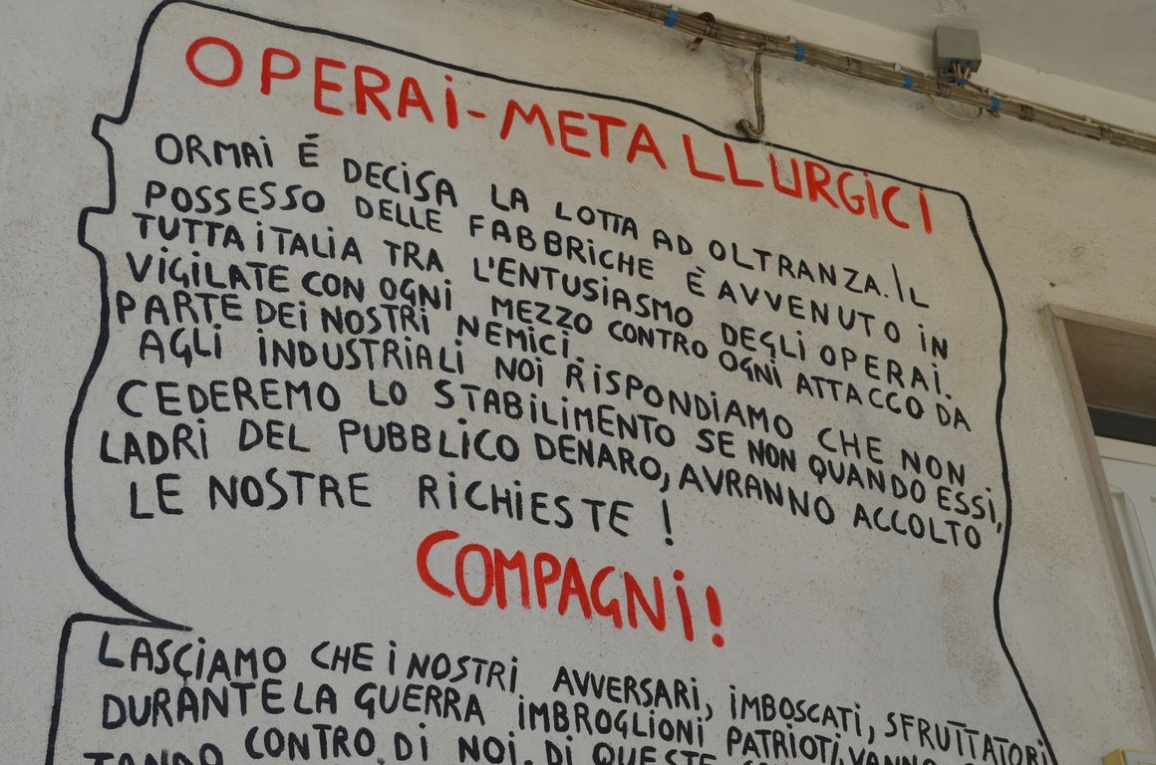 OPERAI-METALLURGICI
ORMAI É DECISA LA LOTTA AD OLTRANZA. IL
POSSESSO DELLE FABBRICHE È AVVENUTO IN
TUTTA ITALIA TRA L'ENTUSIASMO DEGLI OPERAI.
VIGILATE CON OGNI MEZZO CONTRO OGNI ATTACCO DA
PARTE DEI NOSTRI NEMICI.
AGLI INDUSTRIALI NOI RISPONDIAMO CHE NON
CEDEREMO LO STABILIMENTO SE NON QUANDO ESSI,
LADRI DEL PUBBLICO DENARO, AVRANNO ACCOLTO
LE NOSTRE RICHIESTE!
COMPAGNI!
LASCIAMO CHE I NOSTRI AVVERSARI, IMBOSCATI, SFRUTTATORI
DURANTE LA GUERRA IMBROGLIONI PATRIOTI, VANNO
TANDO CONTRO DI NOI. DI QUESTE